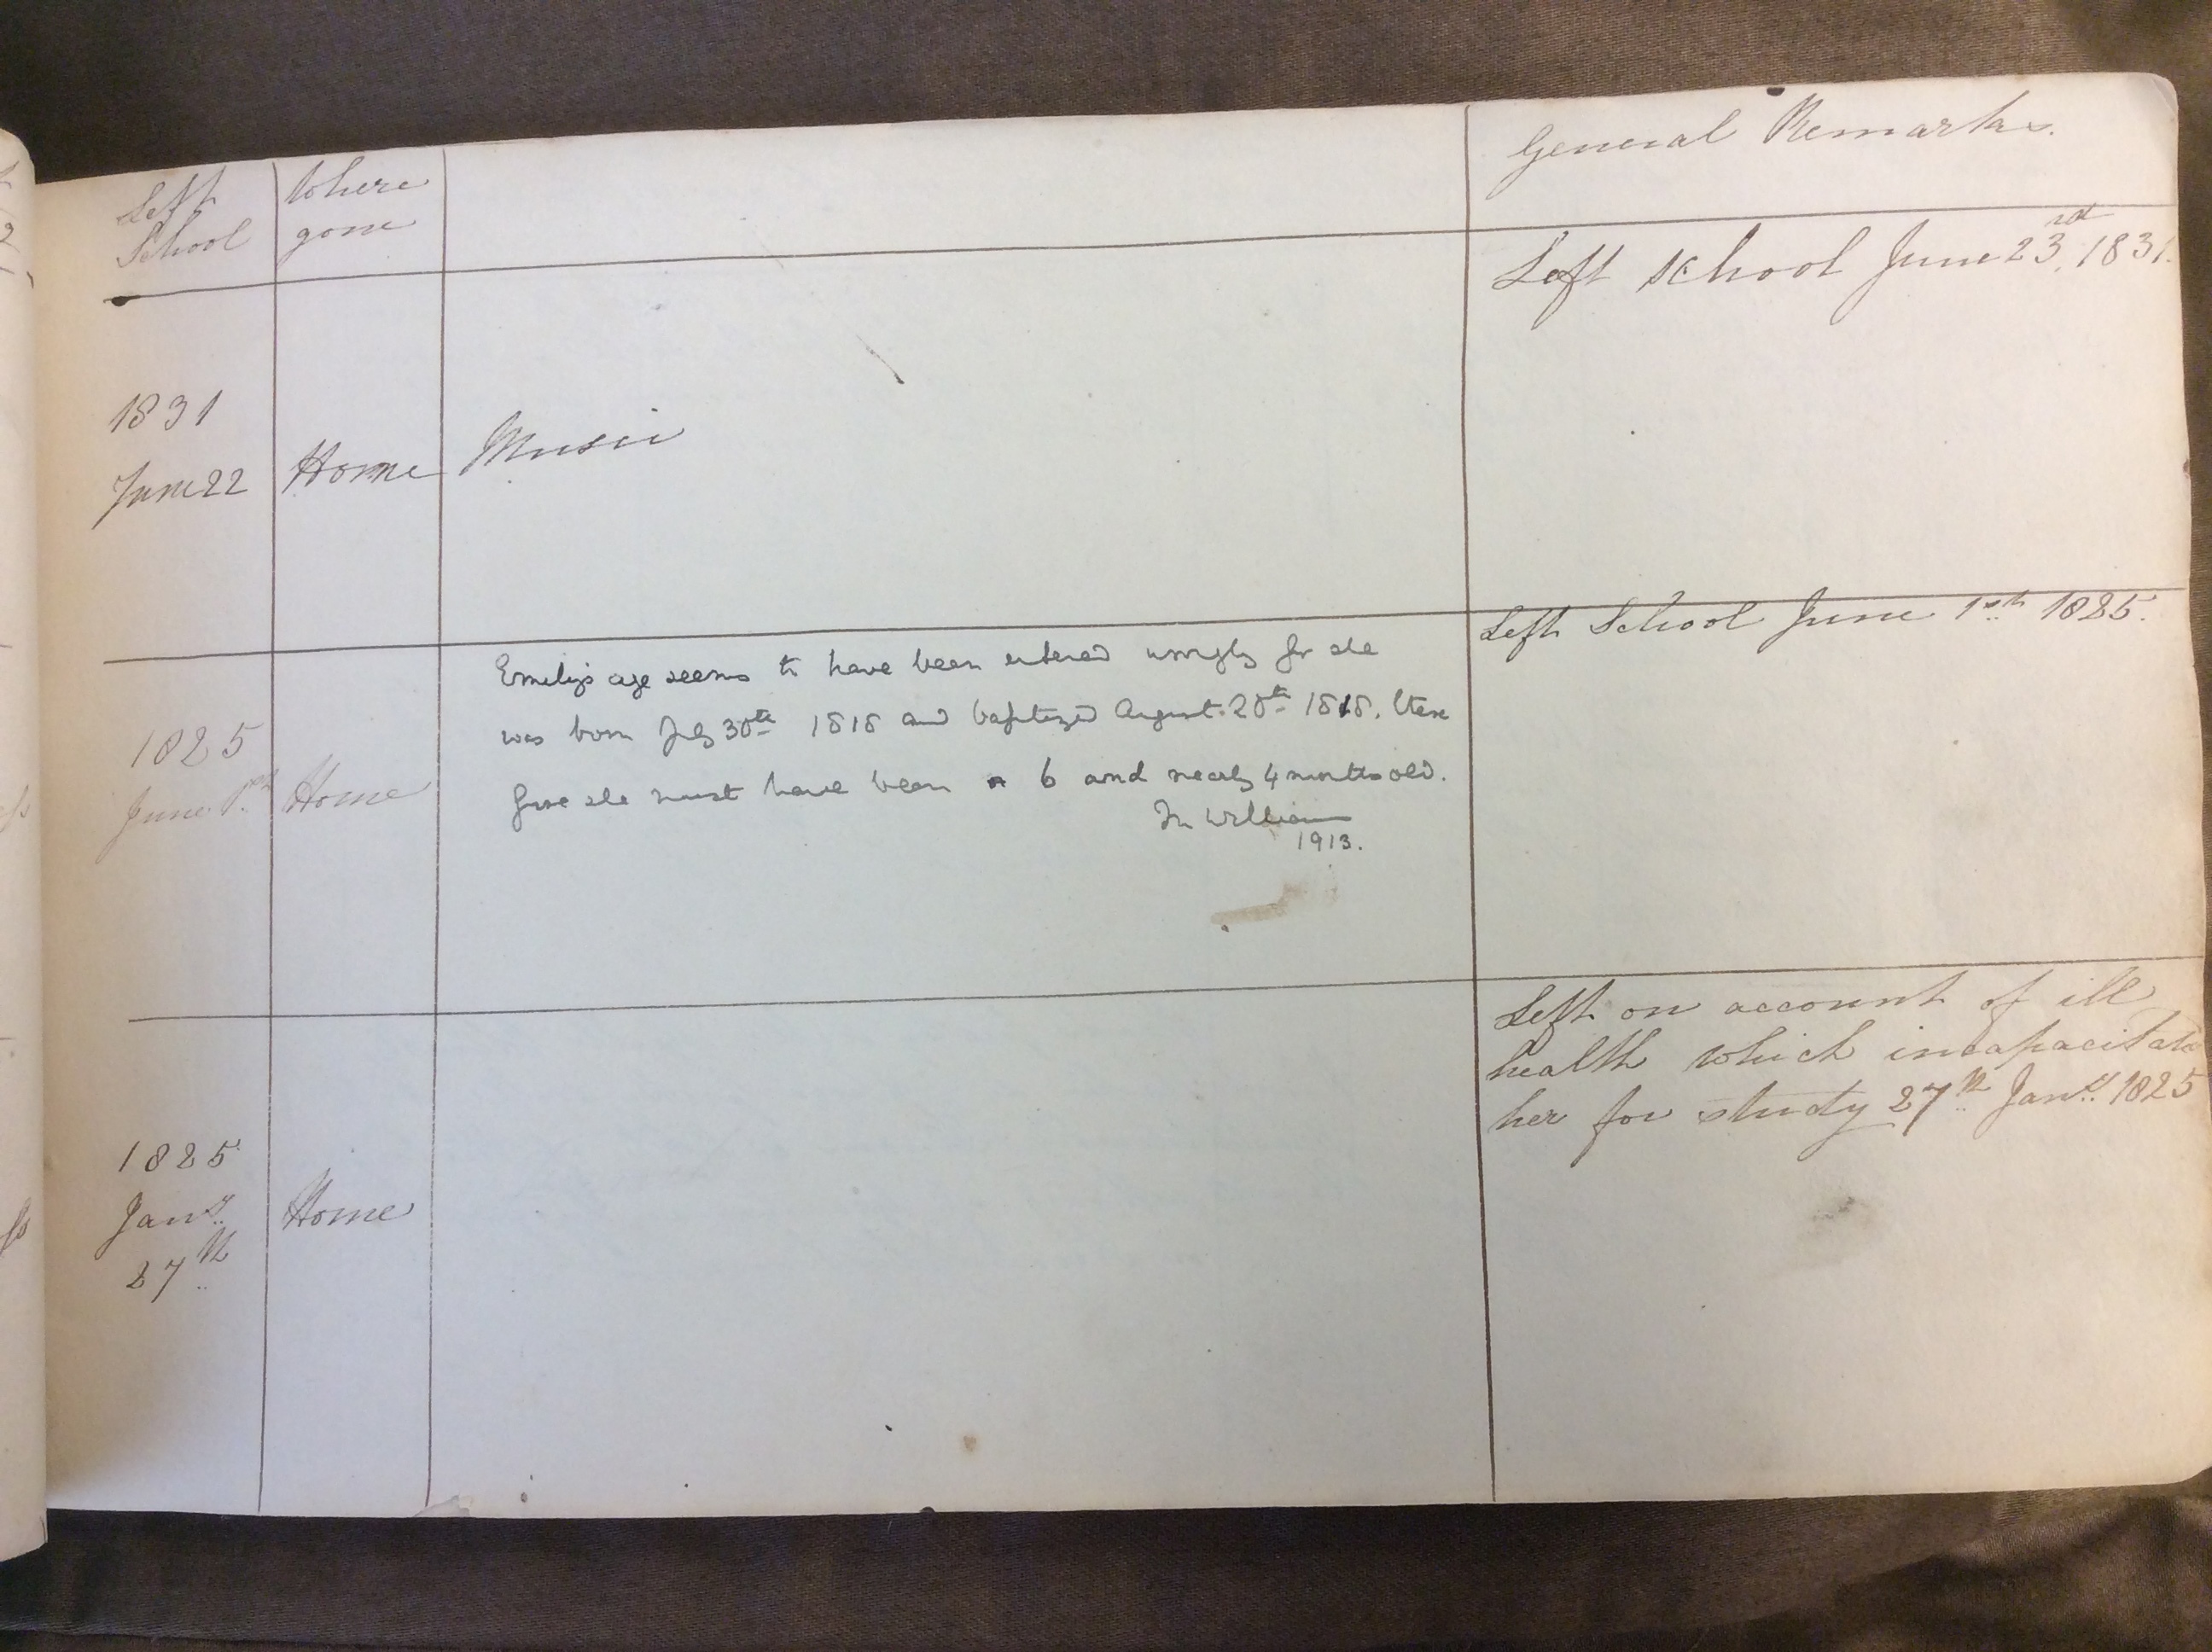 Left
School
Where
gone
General Remarks.
Left school June 23rd, 1831.
1831
June 22
Home
Music
Left School June 1st 1825.
Emily's age seems to have been entered wrongly for she
was born July 30th 1818 and baptized August 20th 1818. There
fore she must have been 6 and nearly 4 months old.
Williams
1913.
1825
June 1st
Home
Left on account of ill
health which incapacitated
her for study 27th Jany 1825
1825
Jany
27th
Home